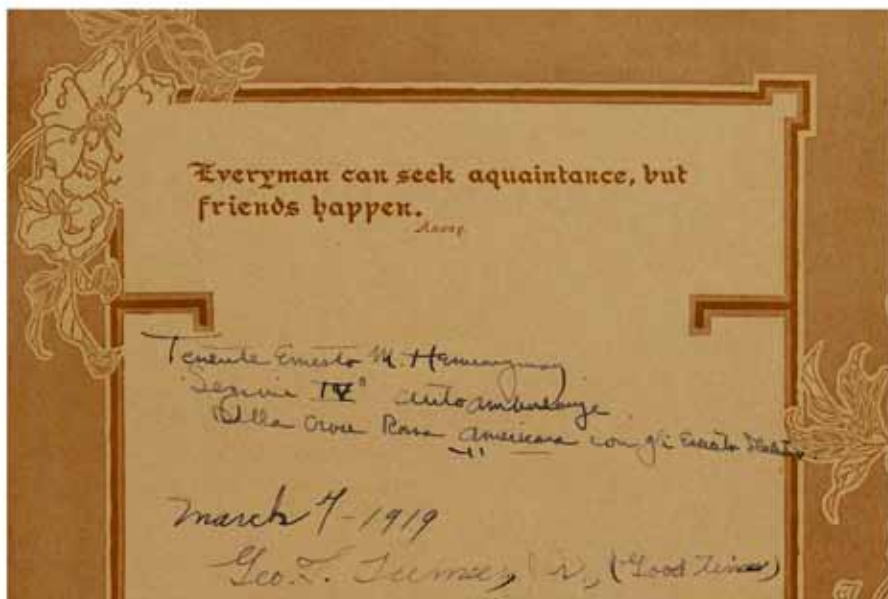 Everyman can seek aquaintance, but
friends happen.
Tenente Ernesto M. Hemingway
"Sezione IV" autoambulanze
Della Croce Rossa Americana con gli Esercito
March 7-1919
Geo. (Good Times)